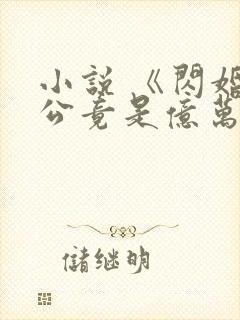 小說《閃婚
公竟是億萬
儲继明